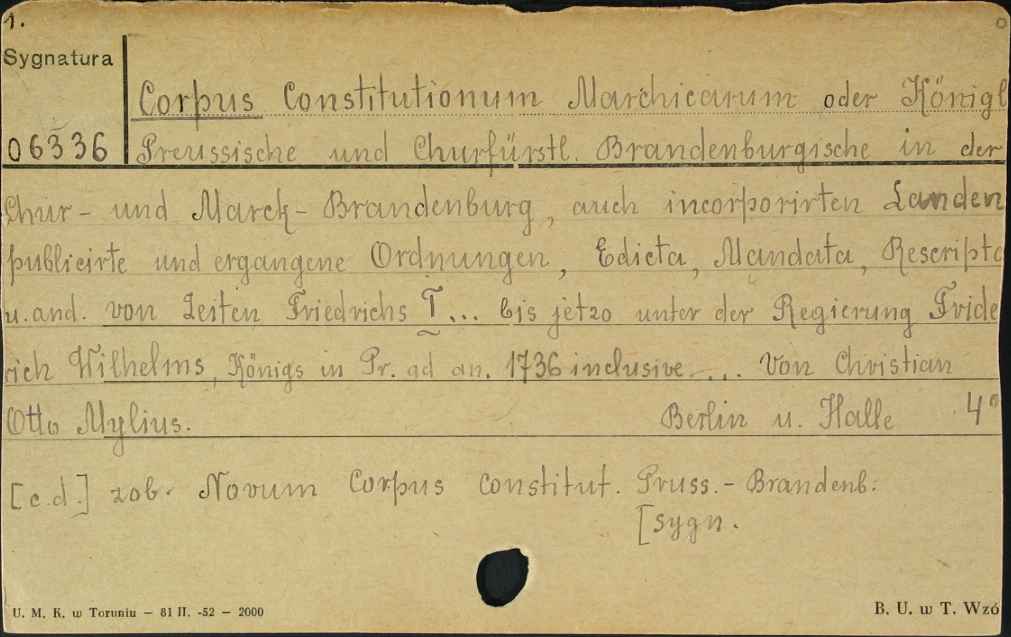 1.
Sygnatura
Corpus Constitutionum Marchicarum oder Königl
06336 Preussische und Churfürstl. Brandenburgische in der
Chur- und Marck-Brandenburg, auch incorporirten Landen
publicirte und ergangene Ordnungen, Edicta, Mandata, Rescripta
u. and. von Zeiten Friedrichs I... bis jetzo unter der Regierung Fride
rich Wilhelms, Königs in Pr. ad an. 1736 inclusive.... Von Christian
Otto Mylius. Berlin u. Halle 4°
[c.d.] zob. Novum Corpus constitut. Pruss.-Brandenb:
[sygn.
U. M. K. w Toruniu — 81 II. -52 — 2000 B. U. w T. Wzó